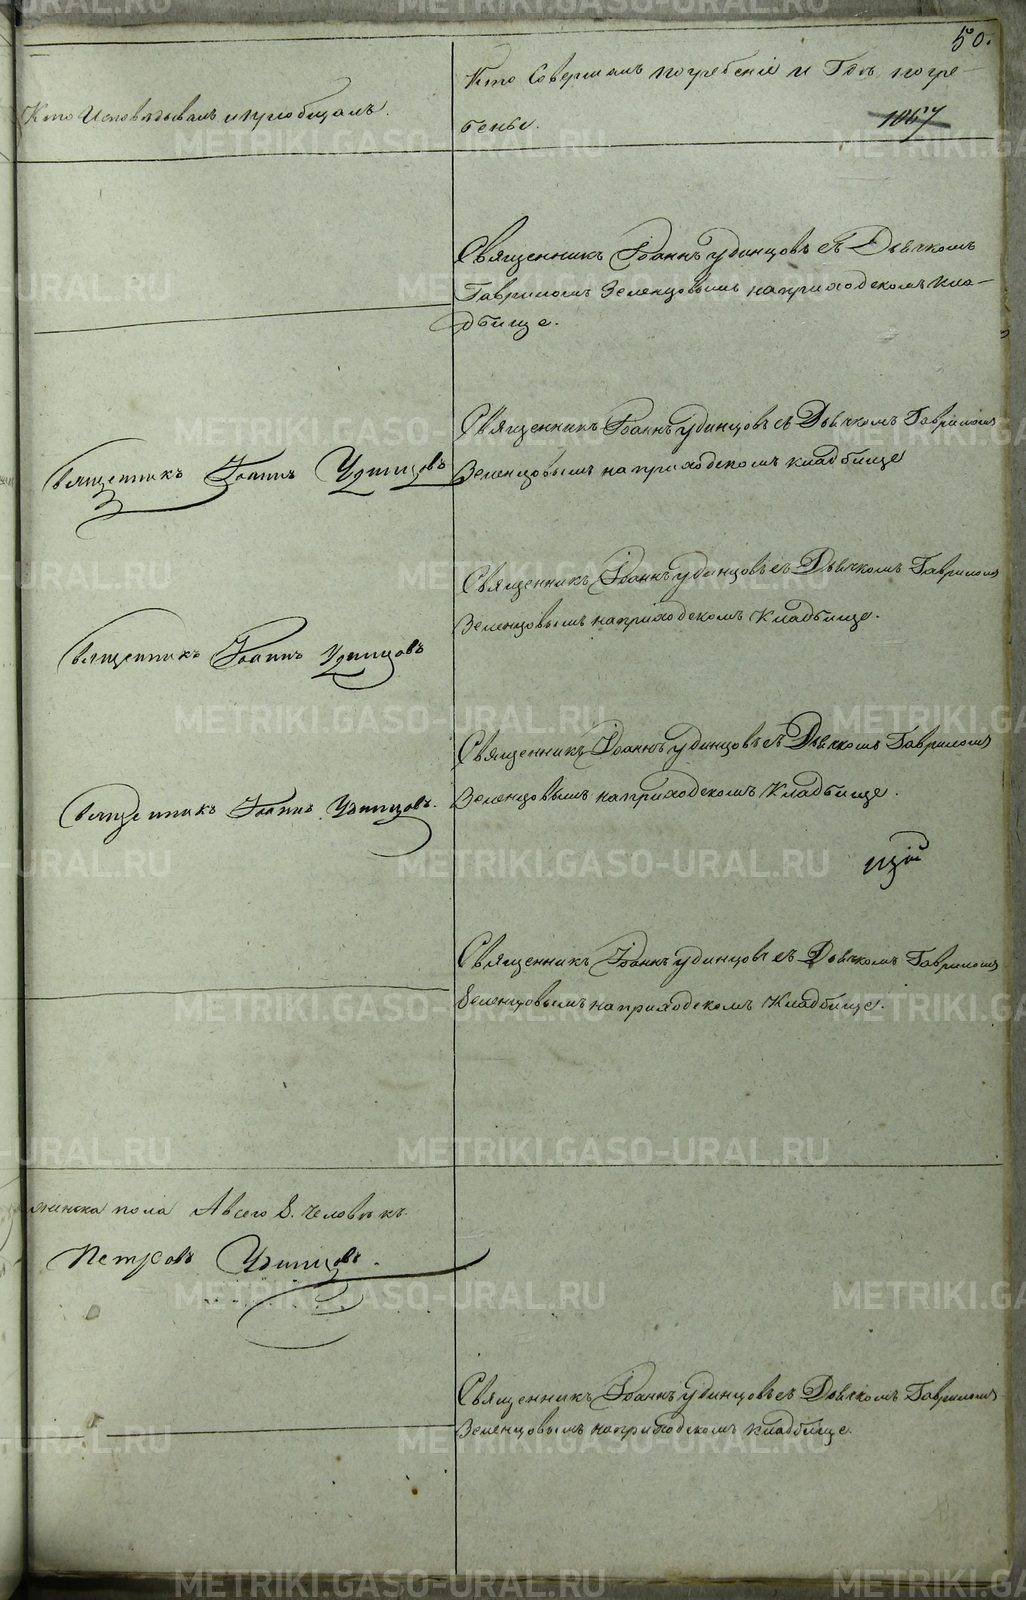 50.
Кто Исповѣдывалъ и пріобщалъ.
Кто Совершалъ погребеніе и Гдѣ погре-
бены.
1067
Священникъ Іоаннъ Удинцовъ съ Дьячкомъ
Гавриломъ Зеленцовымъ на приходскомъ кла-
дбище.
Священникъ Іоаннъ Удинцовъ
Священникъ Іоаннъ Удинцовъ съ Дьячкомъ Гавриломъ
Зеленцовымъ на приходскомъ кладбище
Священникъ Іоаннъ Удинцовъ
Священникъ Іоаннъ Удинцовъ съ Дьячкомъ Гавриломъ
Зеленцовымъ на приходскомъ Кладбище.
Священникъ Іоаннъ Удинцовъ.
Священникъ Іоаннъ Удинцовъ съ Дьячкомъ Гавриломъ
Зеленцовымъ на приходскомъ Кладбище.
Священникъ Іоаннъ Удинцовъ съ Дьячкомъ Гавриломъ
Зеленцовымъ на приходскомъ Кладбище.
женска пола А всего 8. Человѣкъ
Петровъ Удинцовъ.
Священникъ Іоаннъ Удинцовъ съ Дьячкомъ Гавриломъ
Зеленцовымъ на приходскомъ кладбище.
METRIKI.GASO-URAL.RU